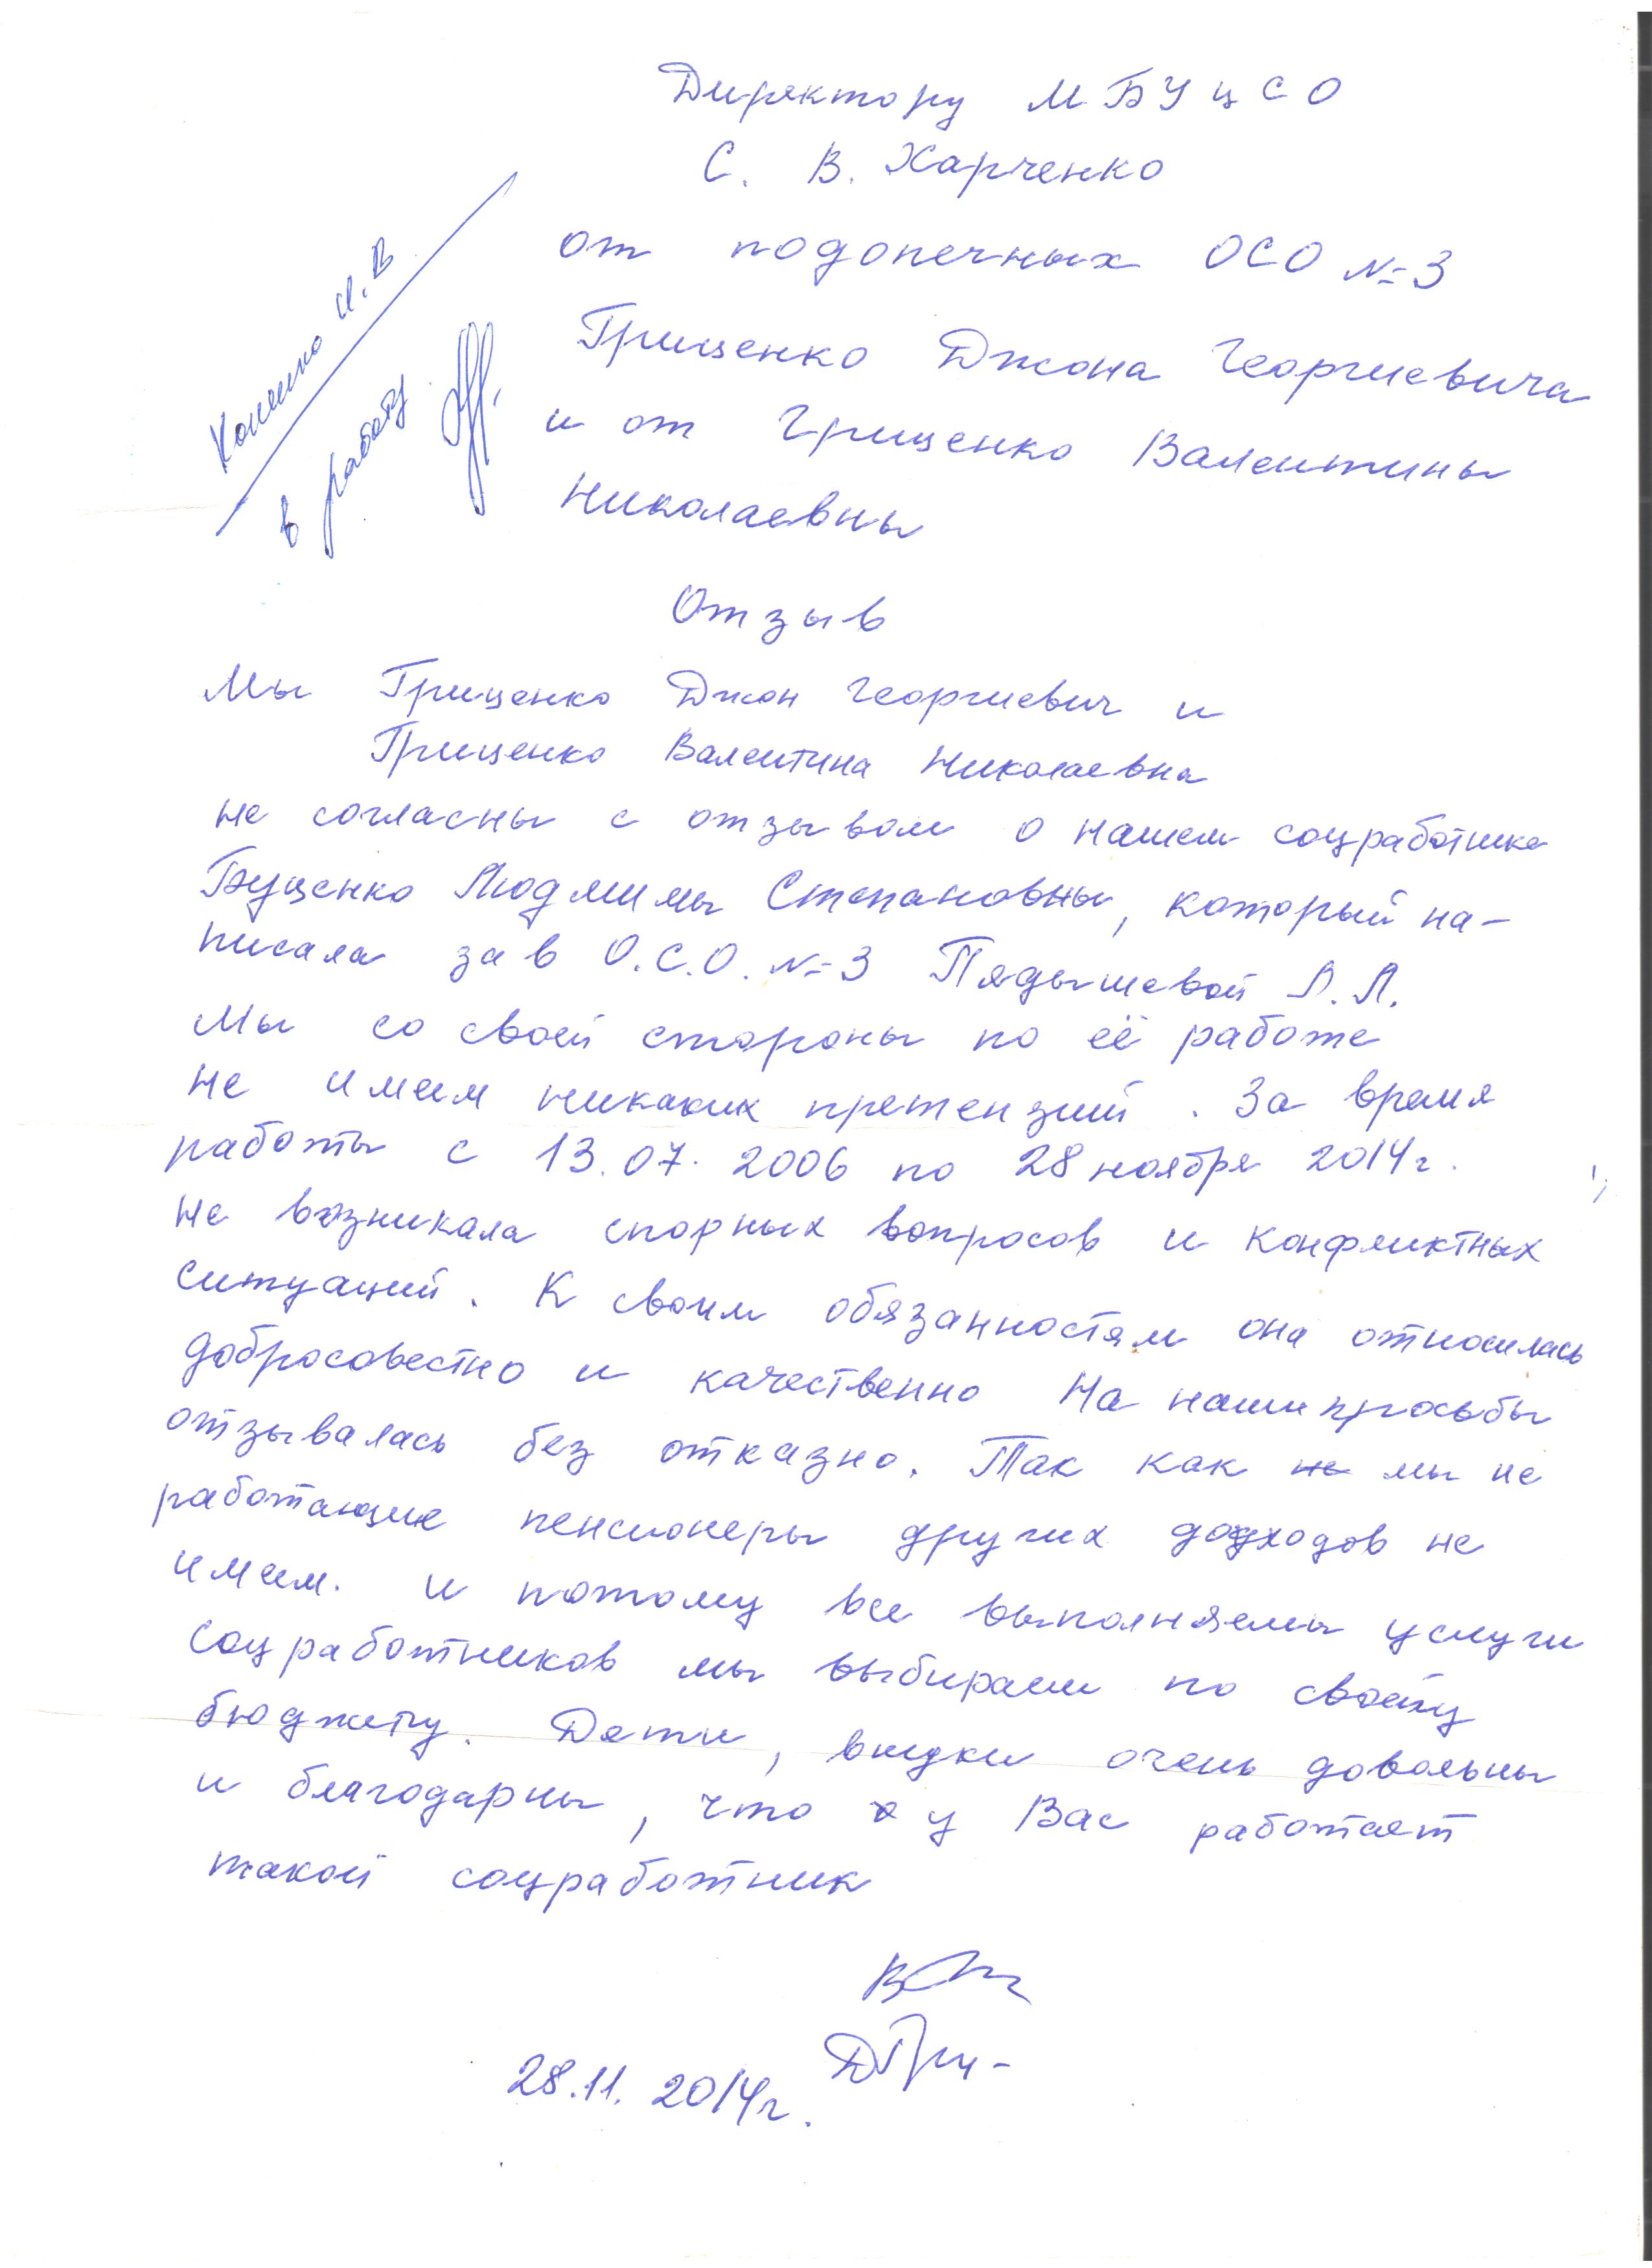 Директору МБУ ЦСО
С. В. Харченко
от подопечных ОСО №3
Грищенко Джона Георгиевича
и от Грищенко Валентины
Николаевны
И. В
в работу
Отзыв
Мы Грищенко Джон Георгиевич и
Грищенко Валентина Николаевна
не согласны с отзывом о нашем соцработнике
Буценко Людмилы Степановны, который на-
писала зав О.С.О. №3 Пядышевой Л.Л.
Мы со своей стороны по её работе
не имеем никаких претензий. За время
работы с 13.07.2006 по 28 ноября 2014г.
не возникала спорных вопросов и конфликтных
ситуаций. К своим обязанностям она относилась
добросовестно и качественно На наши просьбы
отзывалась без отказно. Так как не мы не
работающие пенсионеры других доходов не
имеем. и потому все выполняемы услуги
соцработников мы выбираем по своему
бюджету. Дети, внуки очень довольны
и благодарны, что у Вас работает
такой соцработник
28.11.2014г.